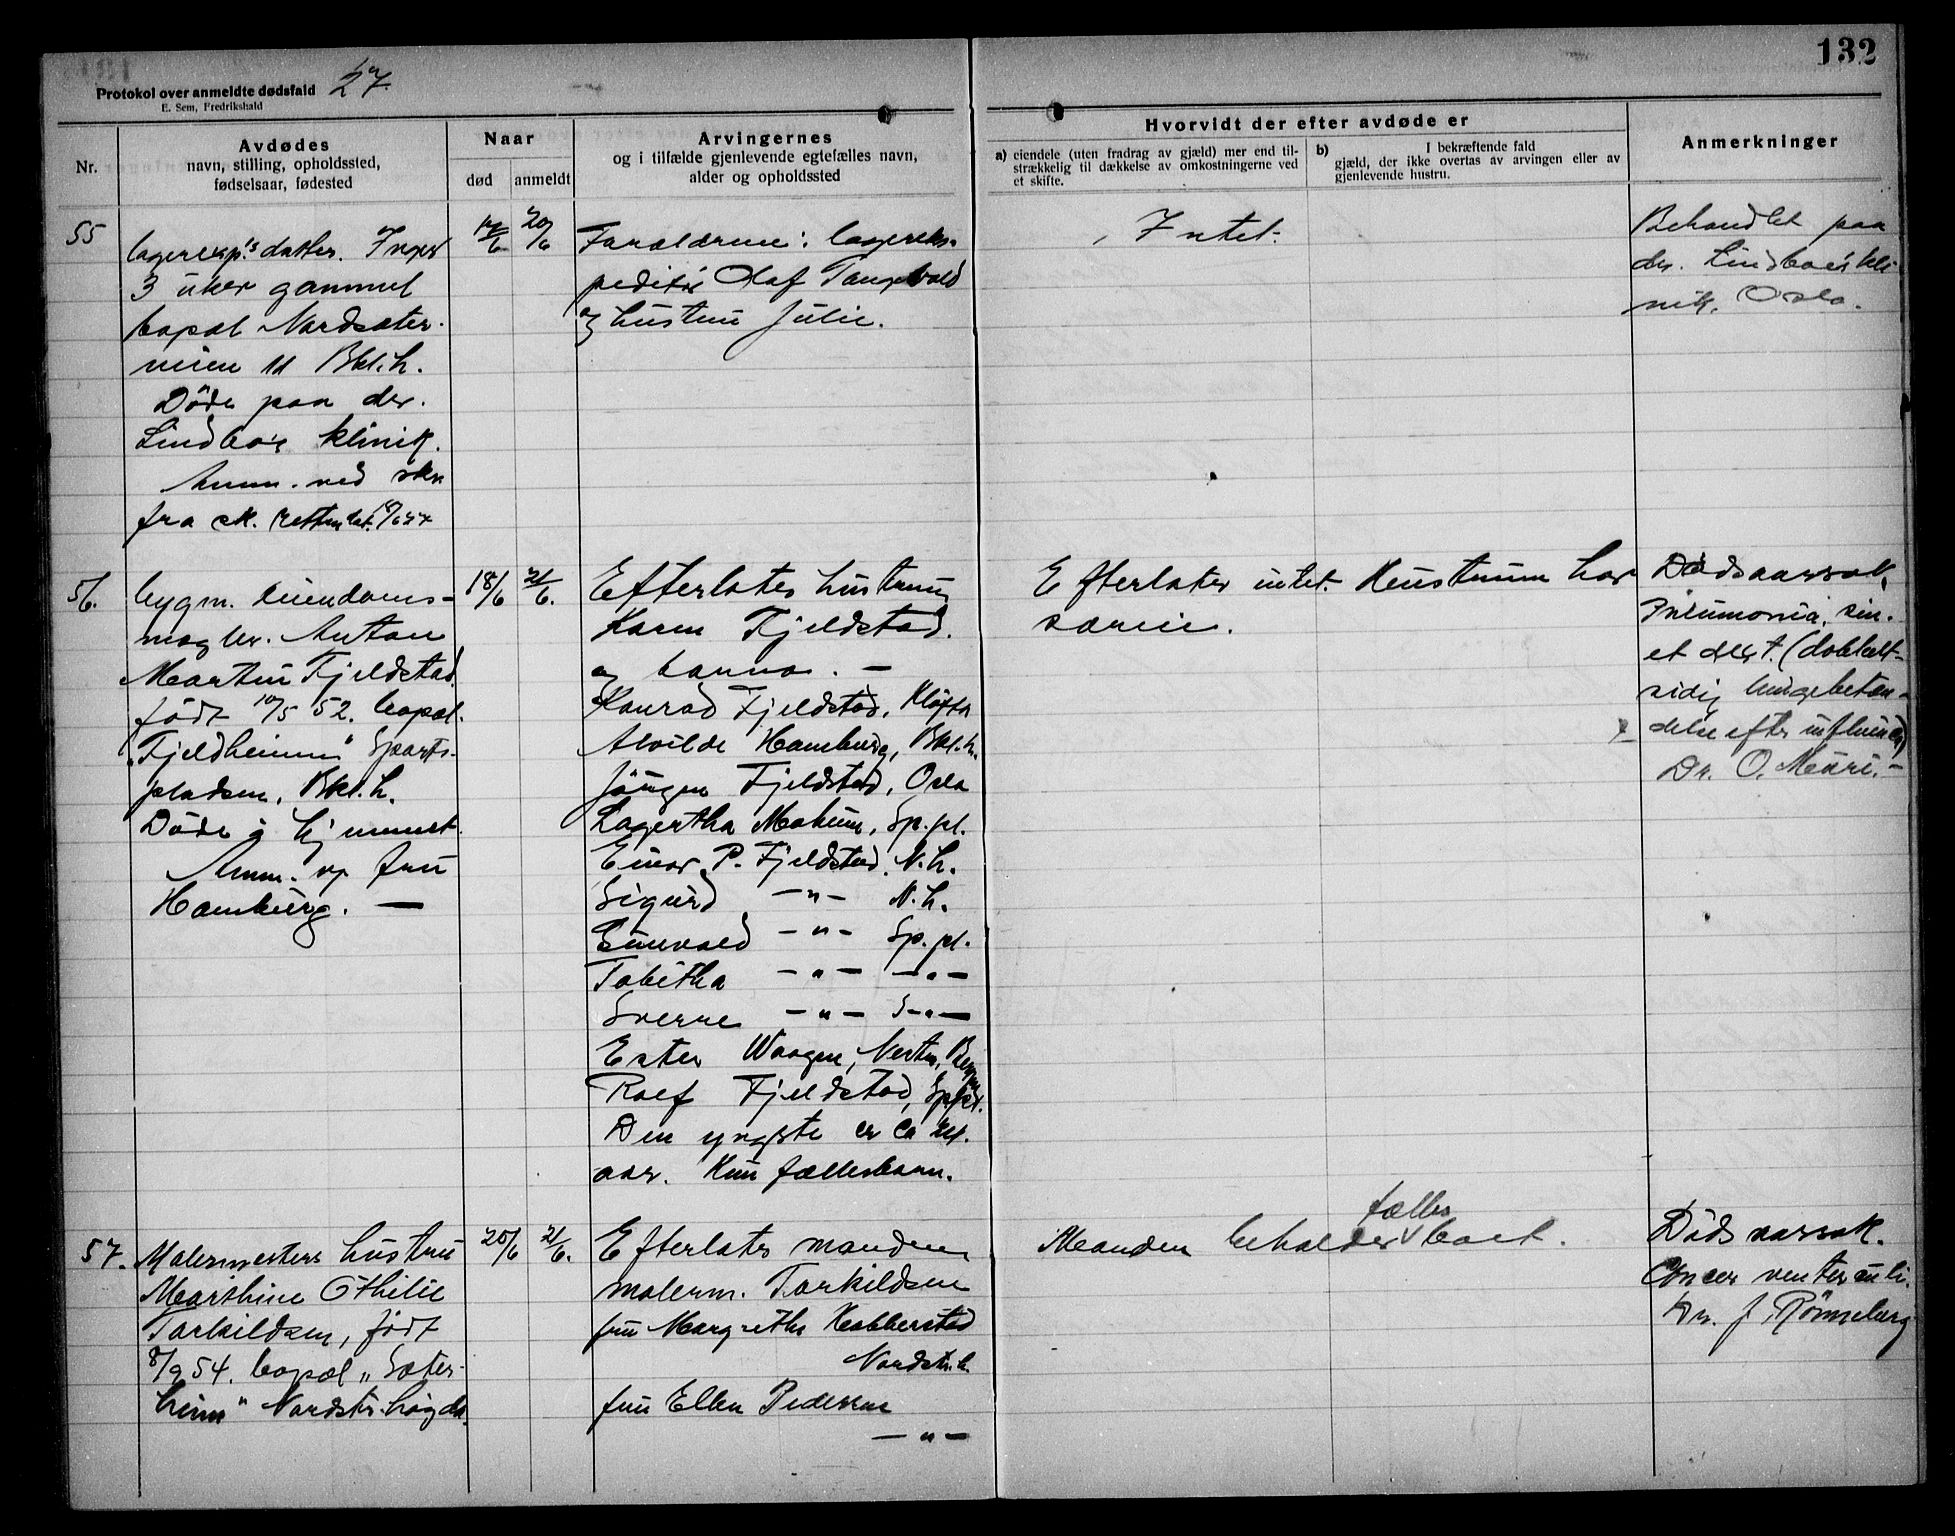 132
Protokol over anmeldte dødsfald 27.
E. Sem, Fredrikshald
Nr.
Avdødes
navn, stilling, opholdssted,
fødselsaar, fødested
Naar
død
anmeldt
Arvingernes
og i tilfælde gjenlevende egtefælles navn,
alder og opholdssted
Hvorvidt der efter avdøde er
a) eiendele (uten fradrag av gjæld) mer end til-
strækkelig til dækkelse av omkostningerne ved
et skifte.
b) I bekræftende fald
gjæld, der ikke overtas av arvingen eller av
gjenlevende hustru.
Anmerkninger
55
lagerexp.'s datter. Inger
3 uker gammel
bopæl Nordsæter-
veien 11 Bkl.h.
Døde paa dr.
Lindboes klinik.
Anm. ved skr
fra sk. retten dat.
20/6
Forældrene: lagereks-
peditør Olaf Tangvald
og hustru Julie.
Intet.
Behandlet paa
dr. Lindboes kli
nik. Oslo.
56.
bygm. eiendoms-
megler. Anton
Martin Fjeldstad.
født 10/5 52. bopæl.
"Fjeldheim" Sports-
pladsen, Bkl.h.
Døde i hjemmet.
Anm. av fru
Hamburg. —
18/6
21/6.
Efterlater hustru
Karen Fjeldstad.
og barna. —
Konrad Fjeldstad, Kløfta
Alvilde Hamburg, Bkl.h.
Jørgen Fjeldstad, Oslo
Lagertha Moheim, Sp.pl.
Einar P. Fjeldstad, N.h.
Sigurd —"— N.h.
Gunvald —"— Sp.pl.
Tabitha —"— —"—
Sverre —"— —"—
Ester Waagen, Nesttun, Bergen
Rolf Fjeldstad, Sp.pl.
Den yngste er ca
aar. Kun fællesbarn.
Efterlater intet. Hustruen har
særeie.
Dødsaarsak.
Pneumonia. sin.
et dext. (dobbelt-
sidig lungebetæn-
delse efter influenza)
Dr. O. Meure. —
57.
Malermesters hustru
Marthine Othilie
Torkildsen, født
8/9 54. bopæl "Sæter-
heim" Nordstr. høgda.
20/6
21/6.
Efterlater manden
malerm. Torkildsen
fru Margrethe Habberstad
Nordstr.h.
fru Ellen Pedersen
—"—
fælles
Manden beholder boet.
Dødsaarsak.
Cancer ventriculi.
Dr. J. Rønneberg